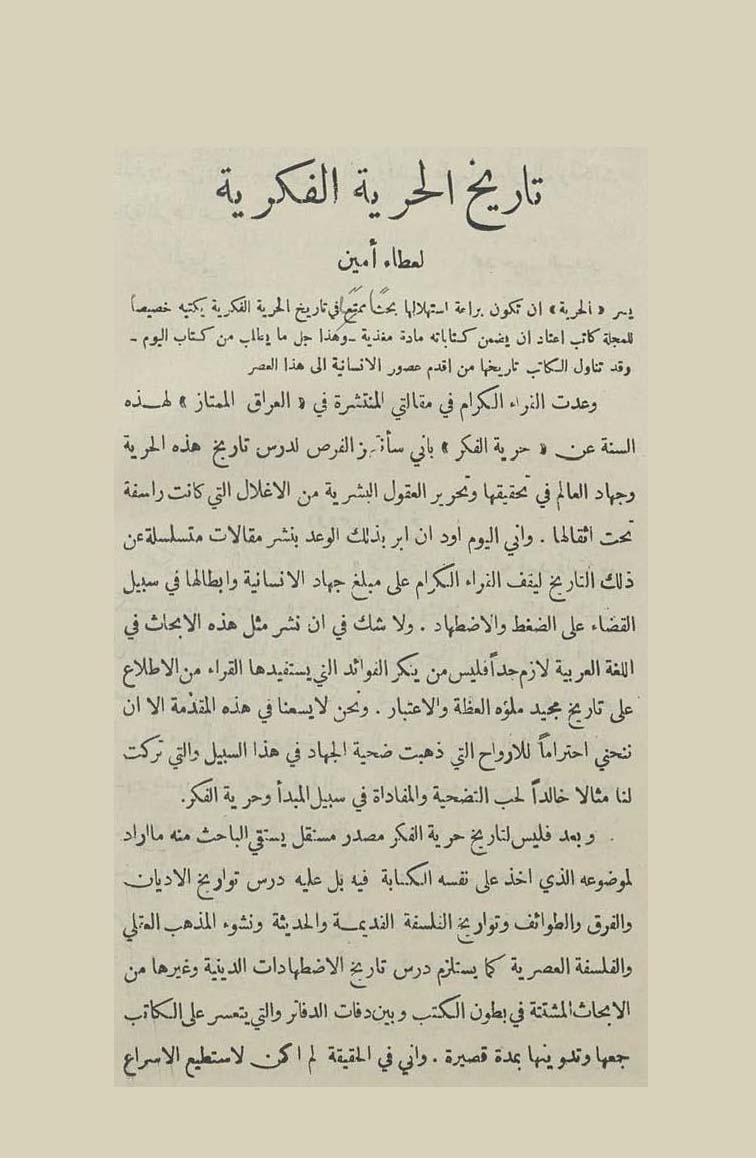 تاريخ الحرية الفكرية
لعطاء أمين
يسر « الحرية » ان تكون براعة استهلالها بحثاً ممتعاً في تاريخ الحرية الفكرية يكتبه خصيصاً
للمجلة كاتب اعتاد ان يضمن كتاباته مادة مغذية ـ وهذا جل ما يطالب من كتاب اليوم ـ
وقد تناول الكاتب تاريخها من اقدم عصور الانسانية الى هذا العصر
وعدت القراء الكرام في مقالتي المنتشرة في « العراق الممتاز » لهذه
السنة عن « حرية الفكر » باني سأنتهز الفرص لدرس تاريخ هذه الحرية
وجهاد العالم في تحقيقها وتحرير العقول البشرية من الاغلال التي كانت راسفة
تحت اثقالها . واني اليوم اود ان ابر بذلك الوعد بنشر مقالات متسلسلة عن
ذلك التاريخ ليقف القراء الكرام على مبلغ جهاد الانسانية وابطالها في سبيل
القضاء على الضغط والاضطهاد . ولا شك في ان نشر مثل هذه الابحاث في
اللغة العربية لازم جداً فليس من ينكر الفوائد التي يستفيدها القراء من الاطلاع
على تاريخ مجيد ملؤه العظة والاعتبار . ونحن لا يسعنا في هذه المقدمة الا ان
ننحني احتراماً للارواح التي ذهبت ضحية الجهاد في هذا السبيل والتي تركت
لنا مثالا خالداً لحب التضحية والمفاداة في سبيل المبدأ وحرية الفكر.
وبعد فليس لتاريخ حرية الفكر مصدر مستقل يستقي الباحث منه ما اراد
لموضوعه الذي اخذ على نفسه الكتابة فيه بل عليه درس تواريخ الاديان
والفرق والطوائف وتواريخ الفلسفة القديمة والحديثة ونشوء المذهب العقلي
والفلسفة العصرية كما يستلزم درس تاريخ الاضطهادات الدينية وغيرها من
الابحاث المشتتة في بطون الكتب وبين دفات الدفاتر والتي يتعسر على الكاتب
جمعها وتدوينها بمدة قصيرة . واني في الحقيقة لم اكن لاستطيع الاسراع